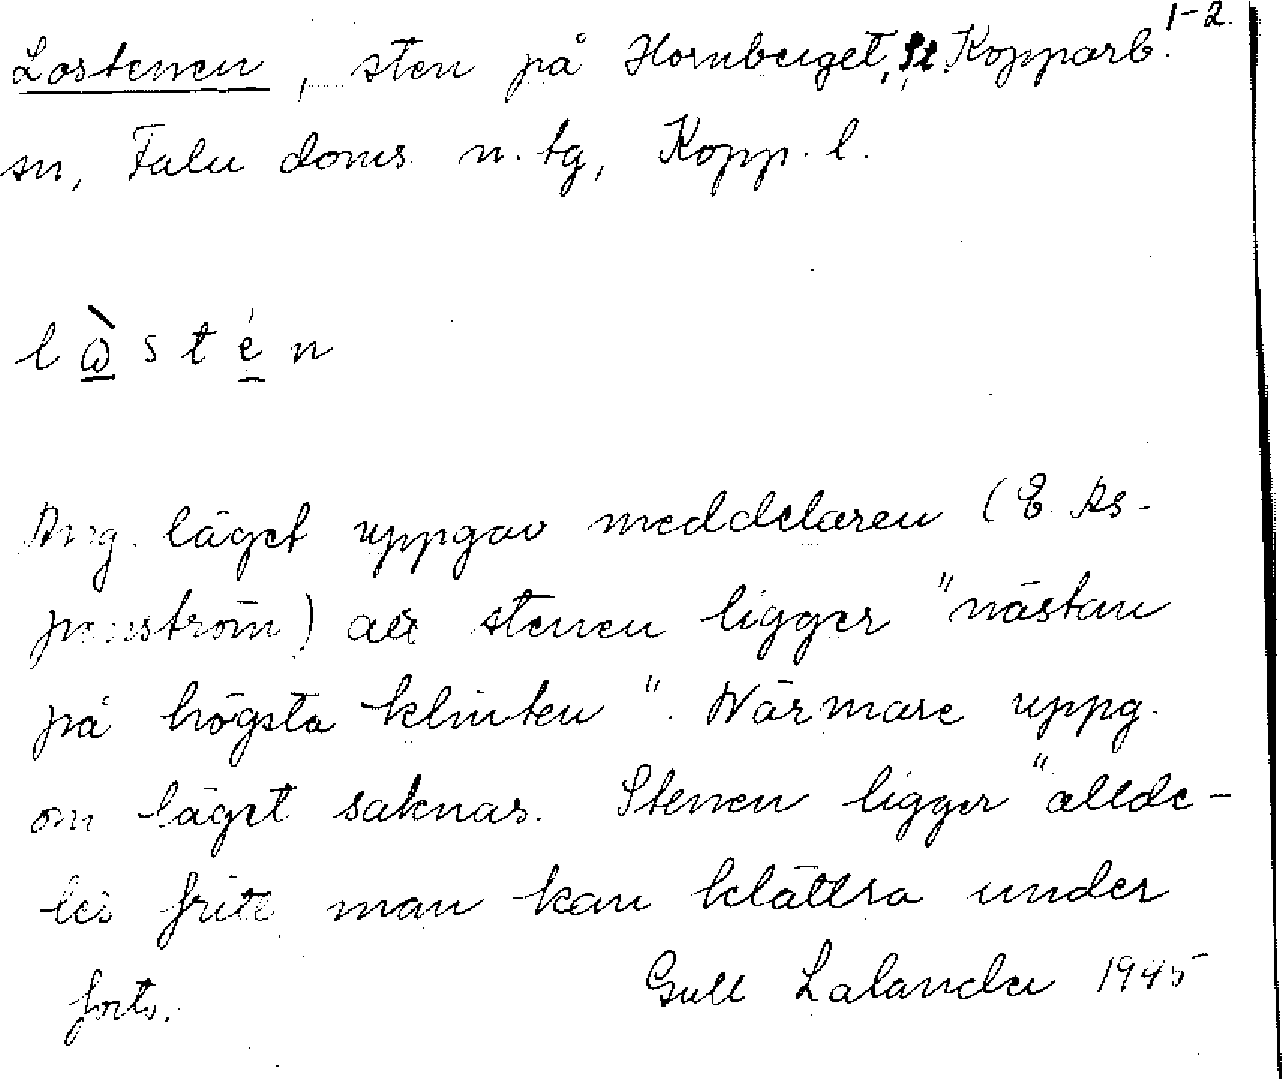 1-2.
Lostenen, sten på Hornberget, St. Kopparb.
sn, Falu doms. n. tg, Kopp. l.
l ὼ s t é n
Ang. läget uppgav meddelaren (E. As-
penström) att stenen ligger "nästan
på högsta klinten". Närmare uppg.
om läget saknas. Stenen ligger "allde-
les fritt man kan klättra under
forts. Gull Lalander 1945